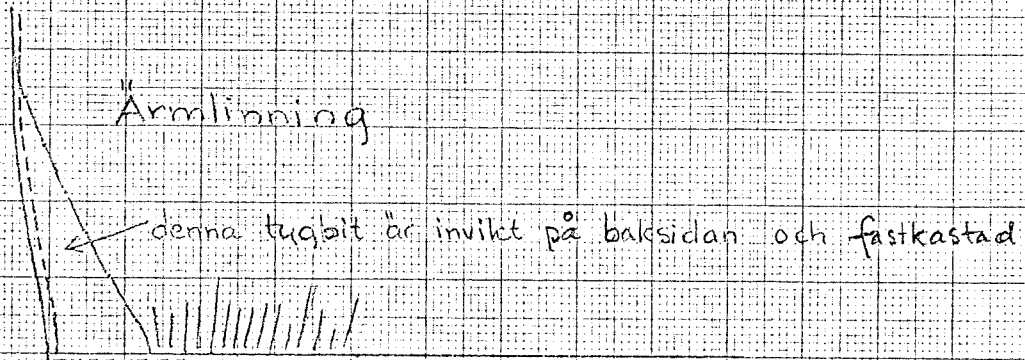 Ärmlinning
denna tygbit är invikt på baksidan och fastkastad